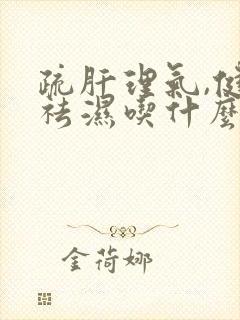 疏肝理氣,健
祛濕喫什麼
金荷娜